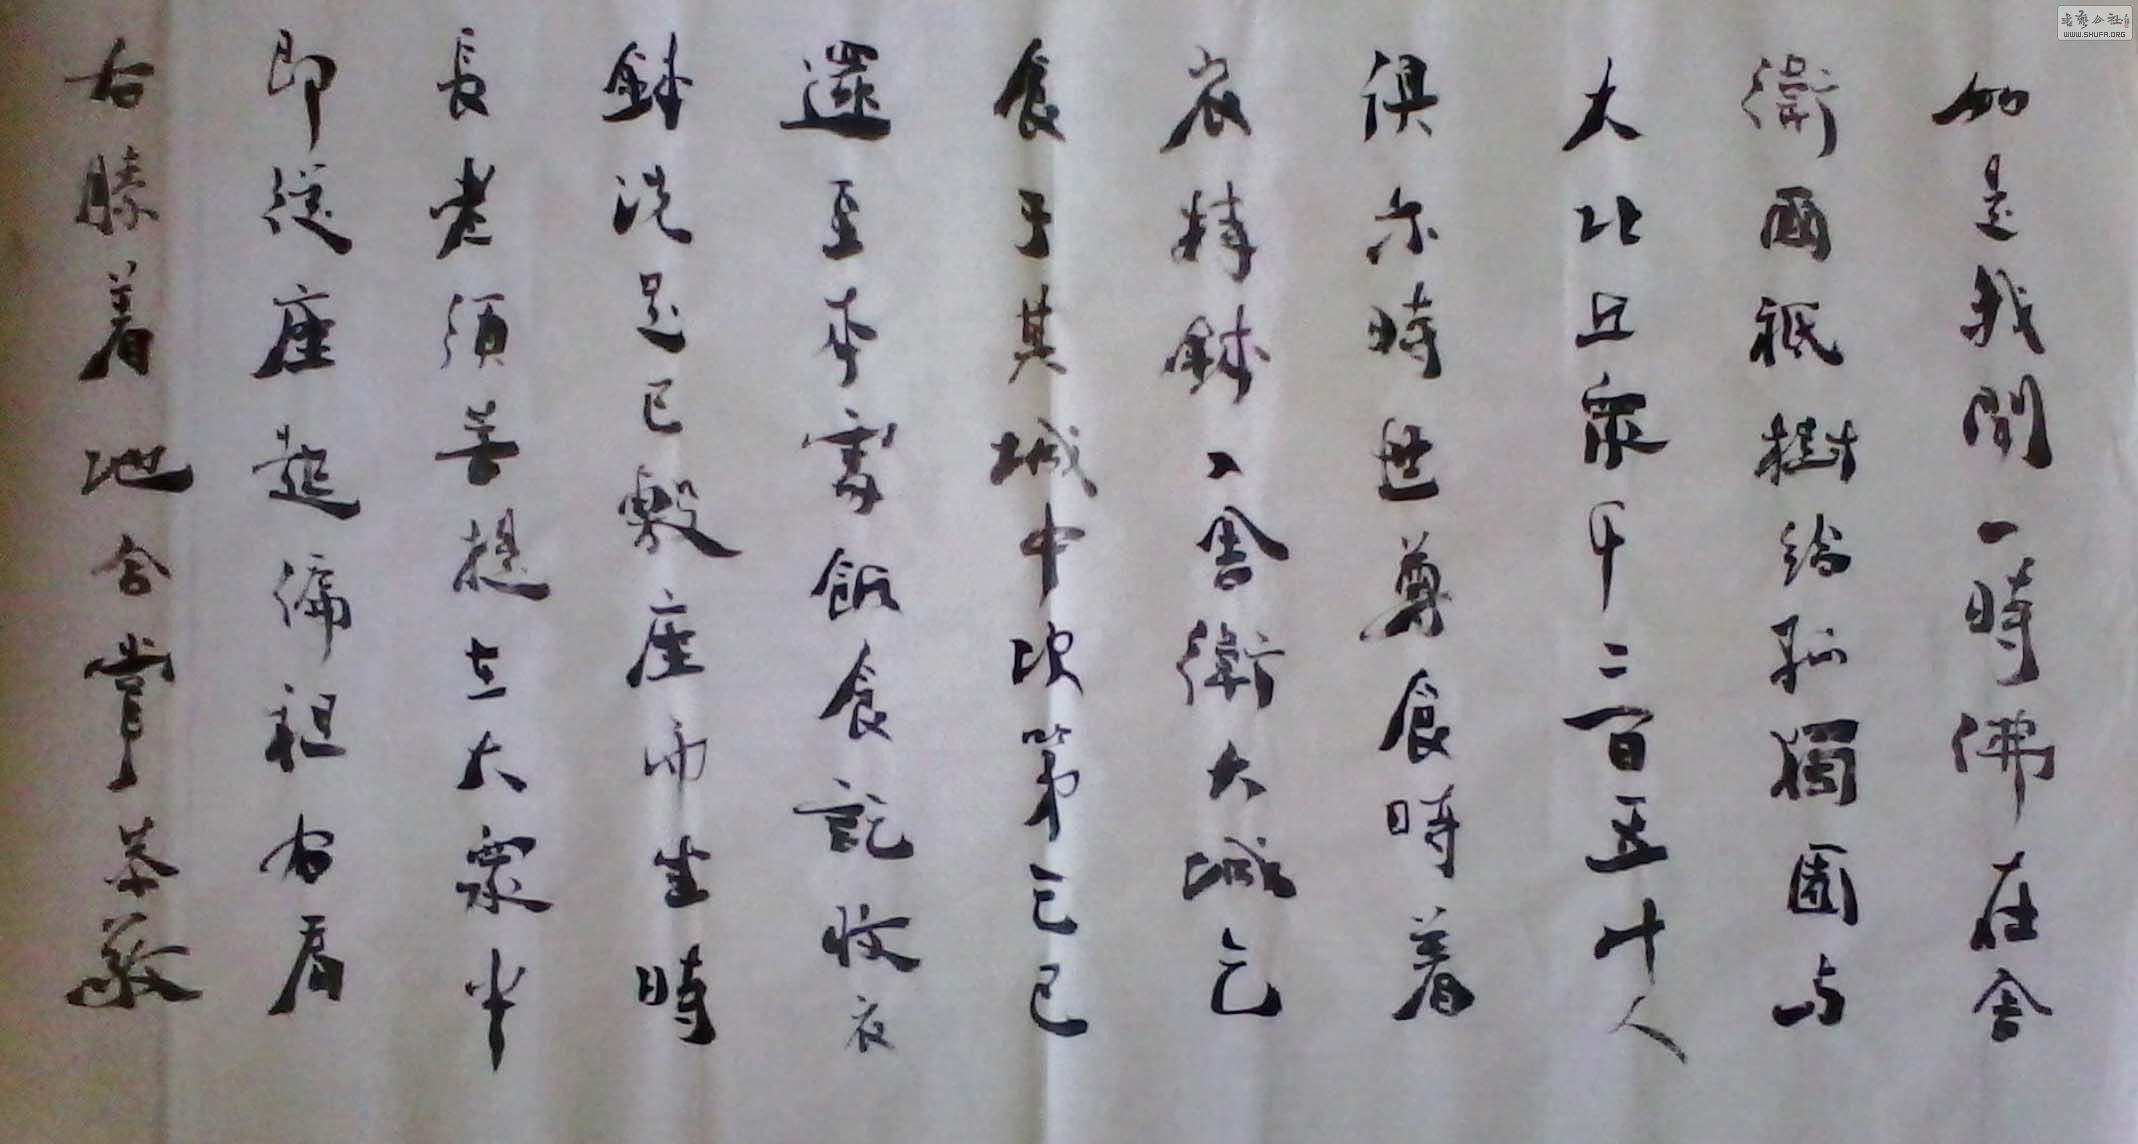 如是我聞一時佛在舍
衛國祇樹給孤獨園与
大比丘眾千二百五十人
俱尔時世尊食時着
衣持鉢入舍衛大城乞
食于其城中次第乞已
還至本處飯食訖收衣
鉢洗足已敷座而坐時
長老須菩提在大眾中
即從座起偏袒右肩
右膝着地合掌恭敬
書藝公社
WWW.SHUFA.ORG